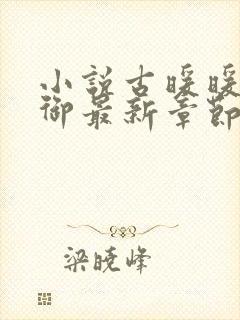 小説古暖暖
御最新章節
梁曉峰